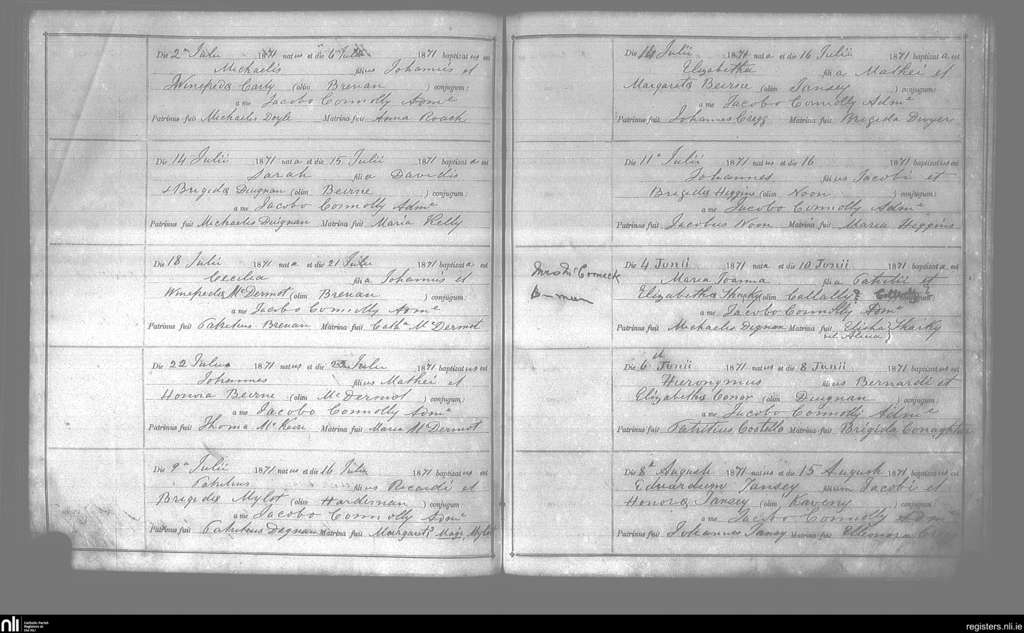 Die 2ª Julii 1871 natus et die 6 Julii 1871 baptizatus est
Michaelis filius Johannis et
Winefredæ Carty (olim Brenan ) conjugum:
a me Jacobo Connolly Admª
Patrinus fuit Michaelis Doyle Matrina fuit Anna Roach
Die 14 Julii 1871 nata et die 15 Julii 1871 baptizata est
Sarah filia Davidis
& Brigidæ Duignan (olim Beirne ) conjugum:
a me Jacobo Connolly Admª
Patrinus fuit Michaelis Duignan Matrina fuit Maria Kelly
Die 18 Julii 1871 nata et die 21 Julii 1871 baptizata est
Cecilia filia Johannis et
Winefredæ McDermot (olim Brenan ) conjugum:
a me Jacobo Connolly Admª
Patrinus fuit Patritius Brenan Matrina fuit Cathe McDermot
Die 22 Julii 1871 natus et die Julii 1871 baptizatus est
Johannes filius Mathei et
Honoria Beirne (olim McDermot ) conjugum:
a me Jacobo Connolly Admª
Patrinus fuit Thoma Matrina fuit Maria McDermot
Die 9ª Julii 1871 natus et die 16 Julii 1871 baptizatus est
Patritius filius Ricardi et
Brigidæ Mylot (olim Hardiman ) conjugum:
a me Jacobo Connolly Admª
Patrinus fuit Patritius Degnan Matrina fuit Margaret Mylot
Die 14 Julii 1871 nata et die 16 Julii 1871 baptizata est
Elizabetha filia Mathei et
Margaritæ Beirne (olim Tansey ) conjugum:
a me Jacobo Connolly Admª
Patrinus fuit Johannes Cregg Matrina fuit Brigida Dwyer
Die 11ª Julii 1871 natus et die 16 1871 baptizatus est
Johannes filius Jacobi et
Brigidæ Higgins (olim Noon ) conjugum:
a me Jacobo Connolly Admª
Patrinus fuit Jacobus Noon Matrina fuit Maria Higgins
Mrs McCormack
Die 4 Junii 1871 nata et die 10 Junii 1871 baptizata est
Maria Joanna filia Patritii et
Elizabetha Sharky (olim Callally? ) conjugum:
a me Jacobo Connolly Admª
Patrinus fuit Michaelis Dignan Matrina fuit Elisha Sharky
vel Alicia
Die 6th Junii 1871 natus et die 8 Junii 1871 baptizatus est
Hieronymus filius Bernardi et
Elizabetha Conor (olim Duignan ) conjugum:
a me Jacobo Connolly Admª
Patrinus fuit Patritius Costello Matrina fuit Brigida Conaghton
Die 8ª Augusti 1871 natus et die 15 Augusti 1871 baptizatus est
Edwardum Tansey filium Jacobi et
Honoræ Tansey (olim Kaveny ) conjugum:
a me Jacobo Connolly Admª
Patrinus fuit Johannes Tansy Matrina fuit Elleonora Cregg
nli
Catholic Parish
Registers at
the NLI
registers.nli.ie